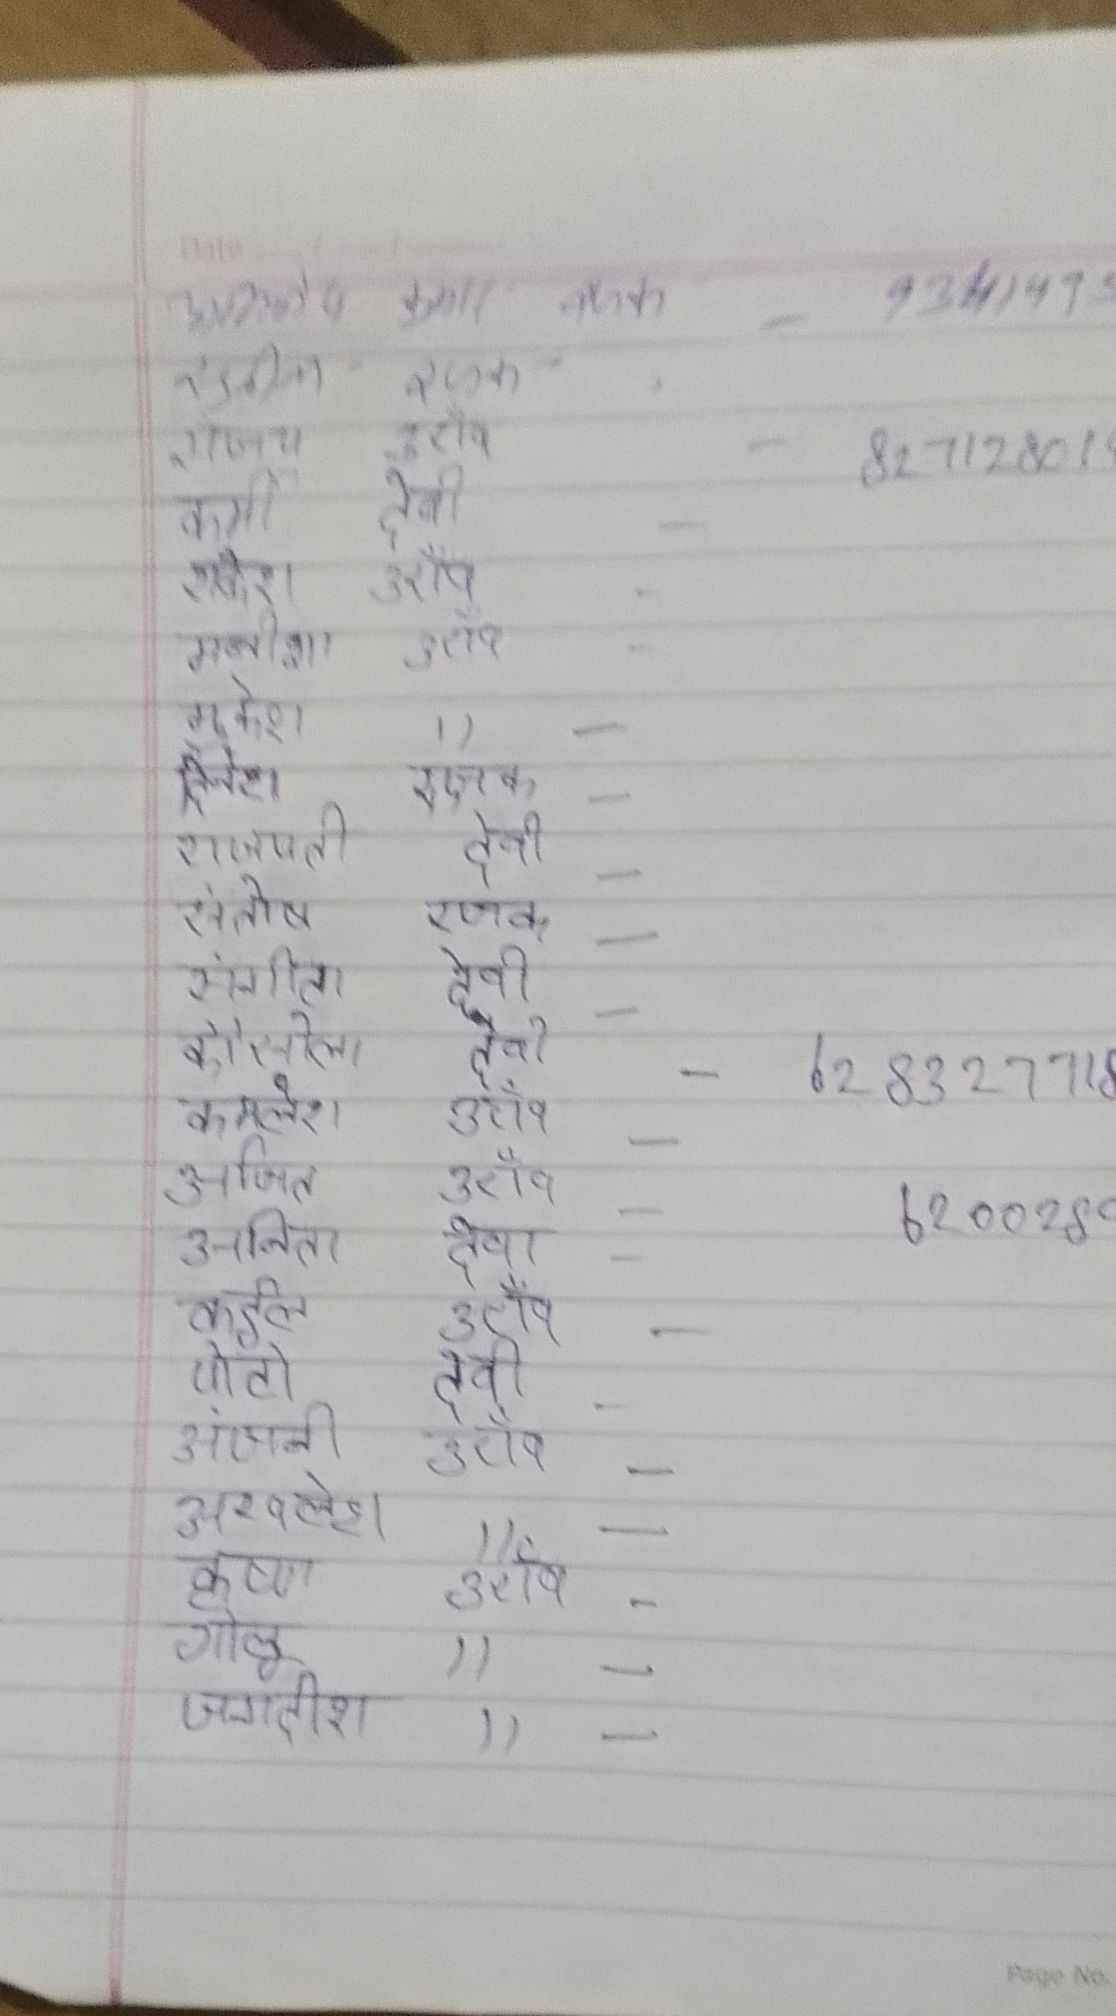 Date
कुमार रजक - 9341493
रजक
संजय उराँव - 82712801
कर्मी देवी -
राकेश उराँव -
मनीशा उराँव -
मुकेश " -
दिनेश रजक -
राजपती देवी -
संतोष रजक -
संगीता देवी -
कौसीला देवी - 628327718
कमलेश उराँव -
अजित उराँव -
620028
अनिता देवी -
कईल उराँव -
पोटो देवी -
अंजनी उराँव -
अखलेश " -
कृष्णा उराँव -
गोलू " -
जगदीश " -
Page No.